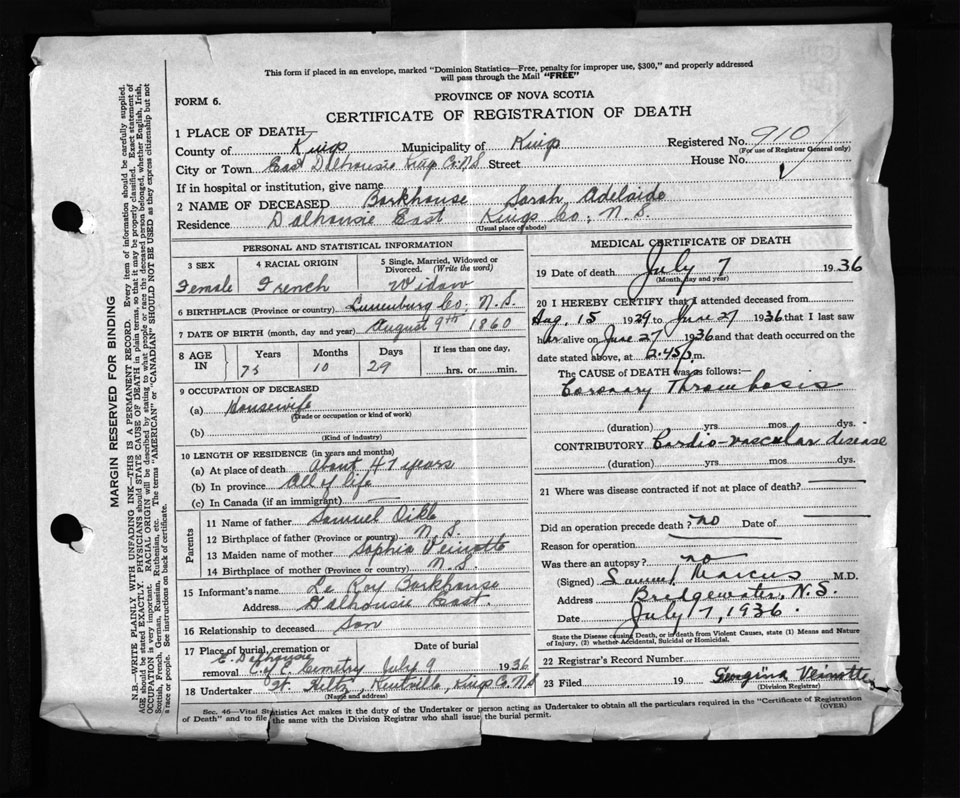 This form if placed in an envelope, marked "Dominion Statistics—Free, penalty for improper use, $300," and properly addressed
will pass through the Mail "FREE"
PROVINCE OF NOVA SCOTIA
FORM 6.
CERTIFICATE OF REGISTRATION OF DEATH
1 PLACE OF DEATH—
County of Kings Municipality of Kings Registered No. 910
(For use of Registrar General only)
City or Town East Dalhousie King Co. N.S. Street House No.
If in hospital or institution, give name
2 NAME OF DECEASED Barkhouse Sarah Adelaide
Residence Dalhousie East Kings Co; N.S.
(Usual place of abode)
PERSONAL AND STATISTICAL INFORMATION
3 SEX 4 RACIAL ORIGIN 5 Single, Married, Widowed or Divorced. (Write the word)
Female French Widow
6 BIRTHPLACE (Province or country) Lunenburg Co; N.S.
7 DATE OF BIRTH (month, day and year) August 9th 1860
8 AGE IN Years Months Days If less than one day,
75 10 29 hrs. or min.
9 OCCUPATION OF DECEASED
(a) Housewife
(Trade or occupation or kind of work)
(b)
(Kind of industry)
10 LENGTH OF RESIDENCE (in years and months)
(a) At place of death About 47 years
(b) In province All of life
(c) In Canada (if an immigrant) —
Parents
11 Name of father Samuel
12 Birthplace of father (Province or country) N.S.
13 Maiden name of mother Sophia Veinotte
14 Birthplace of mother (Province or country) N.S.
15 Informant's name Le Roy Barkhouse
Address Dalhousie East.
16 Relationship to deceased Son
17 Place of burial, cremation or removal Date of burial
E. Dalhousie
C of E Cemetry July 9 1936
18 Undertaker Hiltz, Kentville, Kings Co. N.S
(Name and address)
MEDICAL CERTIFICATE OF DEATH
19 Date of death July 7 1936
(Month, day and year)
20 I HEREBY CERTIFY that I attended deceased from
Aug. 15 1929 to June 27 1936 that I last saw
her alive on June 27 1936 and that death occurred on the
date stated above, at 2.45 p.m.
The CAUSE of DEATH was as follows:—
Coronary Thrombosis
(duration) yrs. mos. dys.
CONTRIBUTORY Cardio-vascular disease
(duration) yrs. mos. dys.
21 Where was disease contracted if not at place of death? —
Did an operation precede death? no Date of —
Reason for operation
Was there an autopsy? no
(Signed) Samuel Marcus M.D.
Address Bridgewater, N.S.
Date July 7, 1936.
State the Disease causing Death, or in death from Violent Causes, state (1) Means and Nature
of Injury, (2) whether Accidental, Suicidal or Homicidal.
22 Registrar's Record Number
23 Filed 19 Georgina Veinotte
(Division Registrar)
Sec. 46—Vital Statistics Act makes it the duty of the Undertaker or person acting as Undertaker to obtain all the particulars required in the "Certificate of Registration
of Death" and to file the same with the Division Registrar who shall issue the burial permit.
(OVER)
MARGIN RESERVED FOR BINDING
N.B.—WRITE PLAINLY WITH UNFADING INK—THIS IS A PERMANENT RECORD. Every item of information should be carefully supplied.
AGE should be stated EXACTLY. PHYSICIANS should STATE CAUSE OF DEATH in plain terms, so that it may be properly classified. Exact statement of
OCCUPATION is very important. RACIAL ORIGIN will be described by stating to what people or race this deceased person belonged, whether English, Irish,
Scottish, French, German, Russian, Ruthenian, etc. The terms "AMERICAN" or "CANADIAN" SHOULD NOT BE USED as they express citizenship but not
a race or people. See instructions on back of certificate.